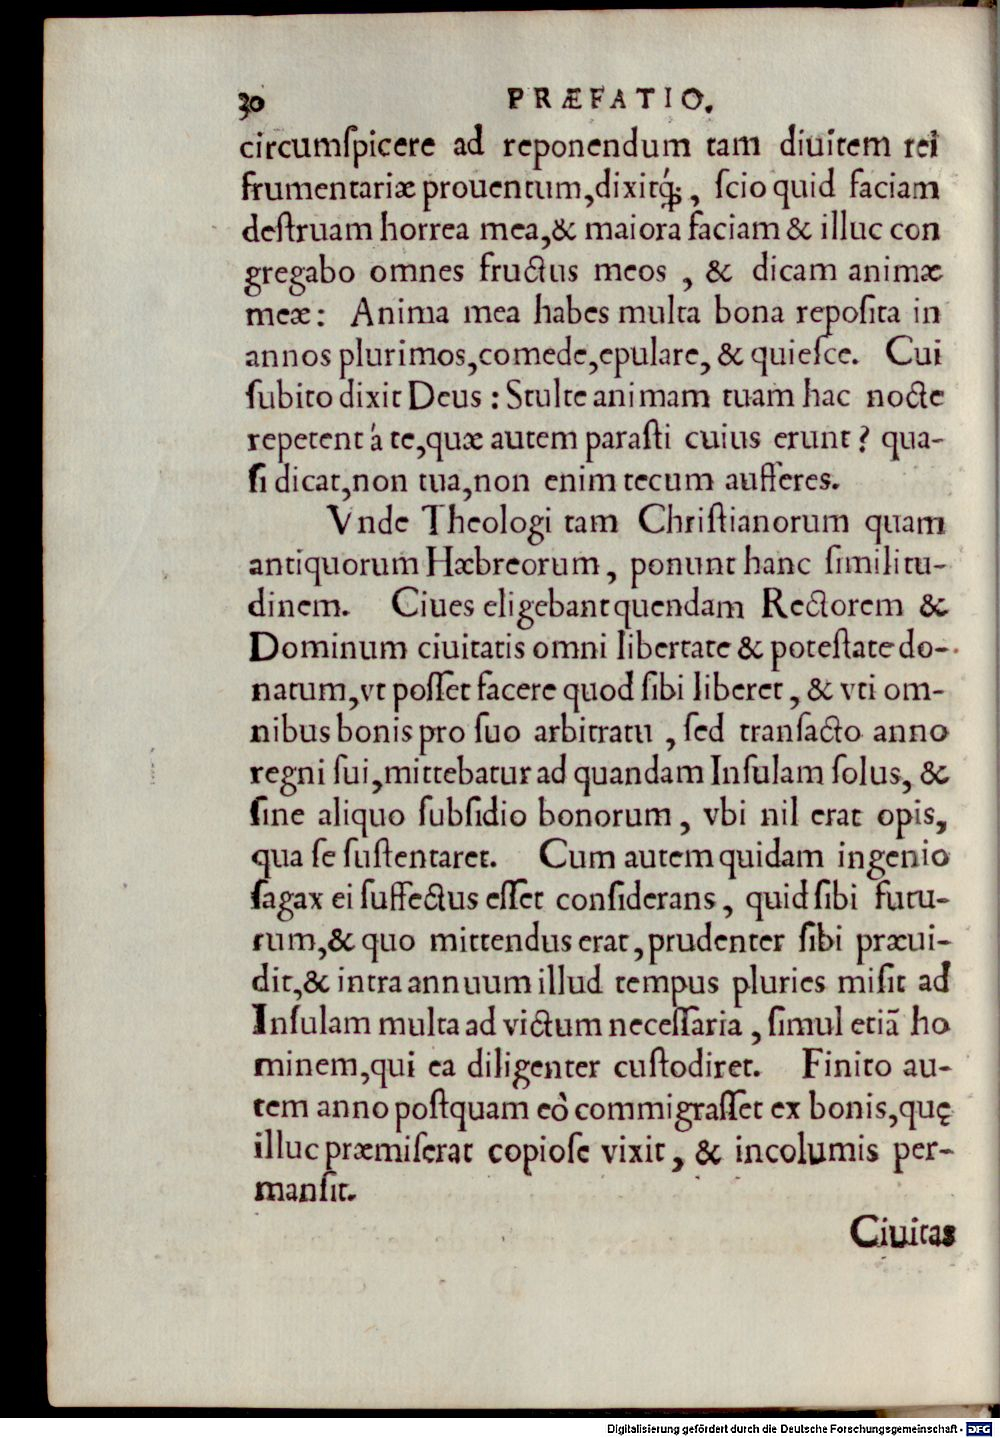 30 PRÆFATIO.
circumſpicere ad reponendum tam diuitem rei
frumentariæ prouentum,dixitq́;, ſcio quid faciam
deſtruam horrea mea,& maiora faciam & illuc con
gregabo omnes fructus meos , & dicam animæ
meæ: Anima mea habes multa bona repoſita in
annos plurimos,comede,epulare, & quieſce. Cui
ſubito dixit Deus : Stulte animam tuam hac nocte
repetent á te,quæ autem paraſti cuius erunt? qua-
ſi dicat,non tua,non enim tecum aufferes.
Vnde Theologi tam Chriſtianorum quam
antiquorum Hæbreorum, ponunt hanc ſimilitu-
dinem. Ciues eligebant quendam Rectorem &
Dominum ciuitatis omni libertate & poteſtate do-
natum,vt poſſet facere quod ſibi liberet, & vti om-
nibus bonis pro ſuo arbitratu , ſed tranſacto anno
regni ſui,mittebatur ad quandam Inſulam ſolus, &
ſine aliquo ſubſidio bonorum, vbi nil erat opis,
qua ſe ſuſtentaret. Cum autem quidam ingenio
ſagax ei ſuffectus eſſet conſiderans, quid ſibi futu-
rum,& quo mittendus erat,prudenter ſibi præui-
dit,& intra annuum illud tempus pluries miſit ad
Inſulam multa ad victum neceſſaria, ſimul etiã ho
minem,qui ea diligenter cuſtodiret. Finito au-
tem anno poſtquam eò commigraſſet ex bonis,quę
illuc præmiſerat copioſe vixit, & incolumis per-
manſit.
Ciuitas
Digitalisierung gefördert durch die Deutsche Forschungsgemeinschaft - DFG